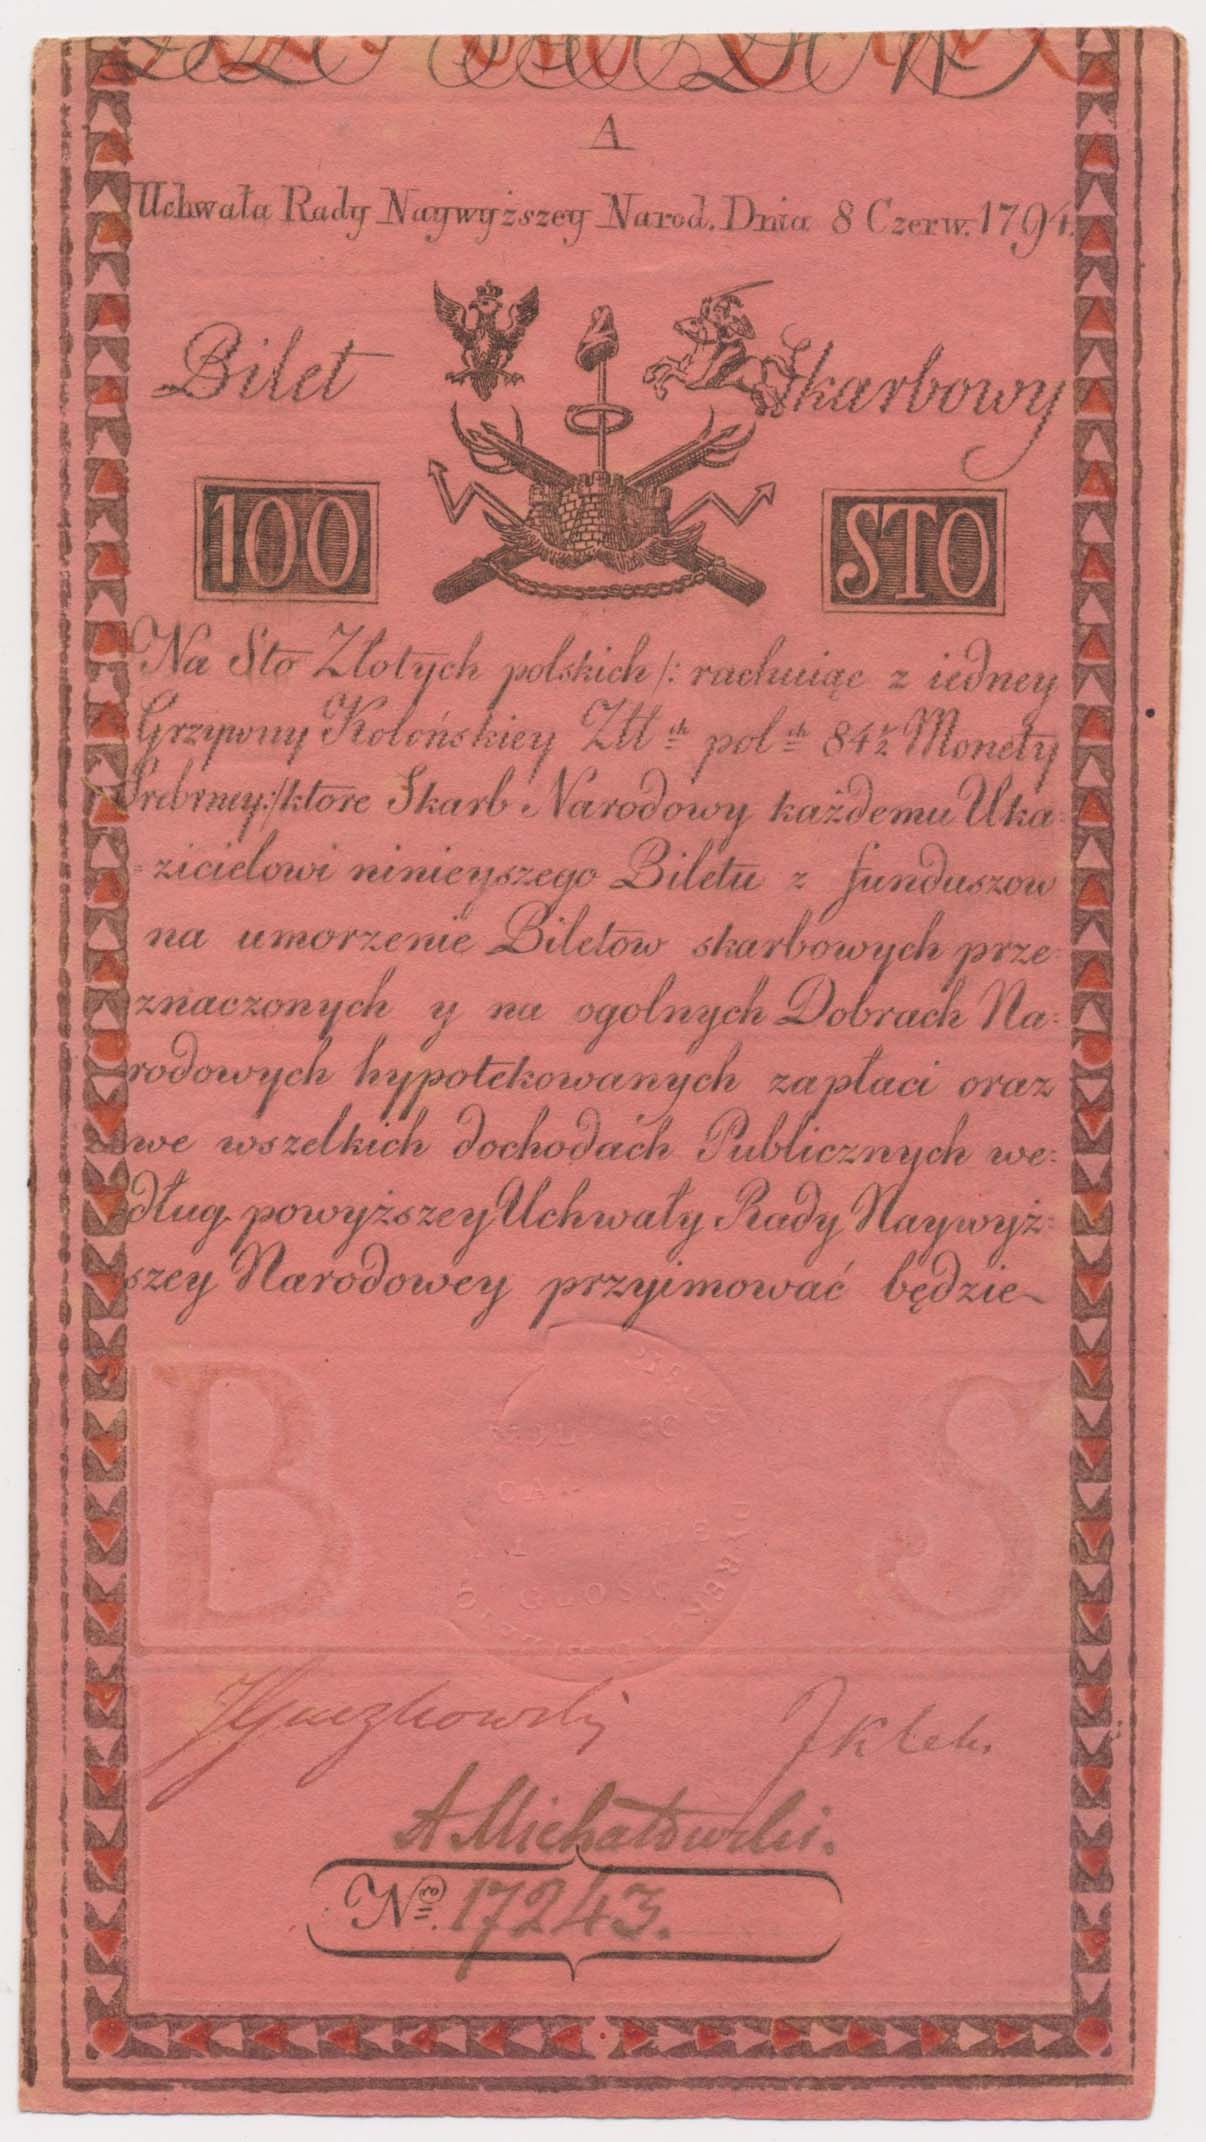 A
Uchwała Rady Naywyższey Narod. Dnia 8 Czerw. 1794.
Bilet Skarbowy
100 STO
Na Sto Złotych polskich /: rachuiąc z iedney
Grzywny Kolońskiey Złł ch pol ch 84 1/2 Monety
Srebrney :/ ktore Skarb Narodowy każdemu Uka=
=zicielowi ninieyszego Biletu z funduszow
na umorzenie Biletow skarbowych prze=
znaczonych y na ogolnych Dobrach Na=
rodowych hypotekowanych zapłaci oraz
we wszelkich dochodach Publicznych we=
dług powyższey Uchwały Rady Naywyż=
szey Narodowey przyimować będzie
B S
A Michałowski.
Nro 17243.